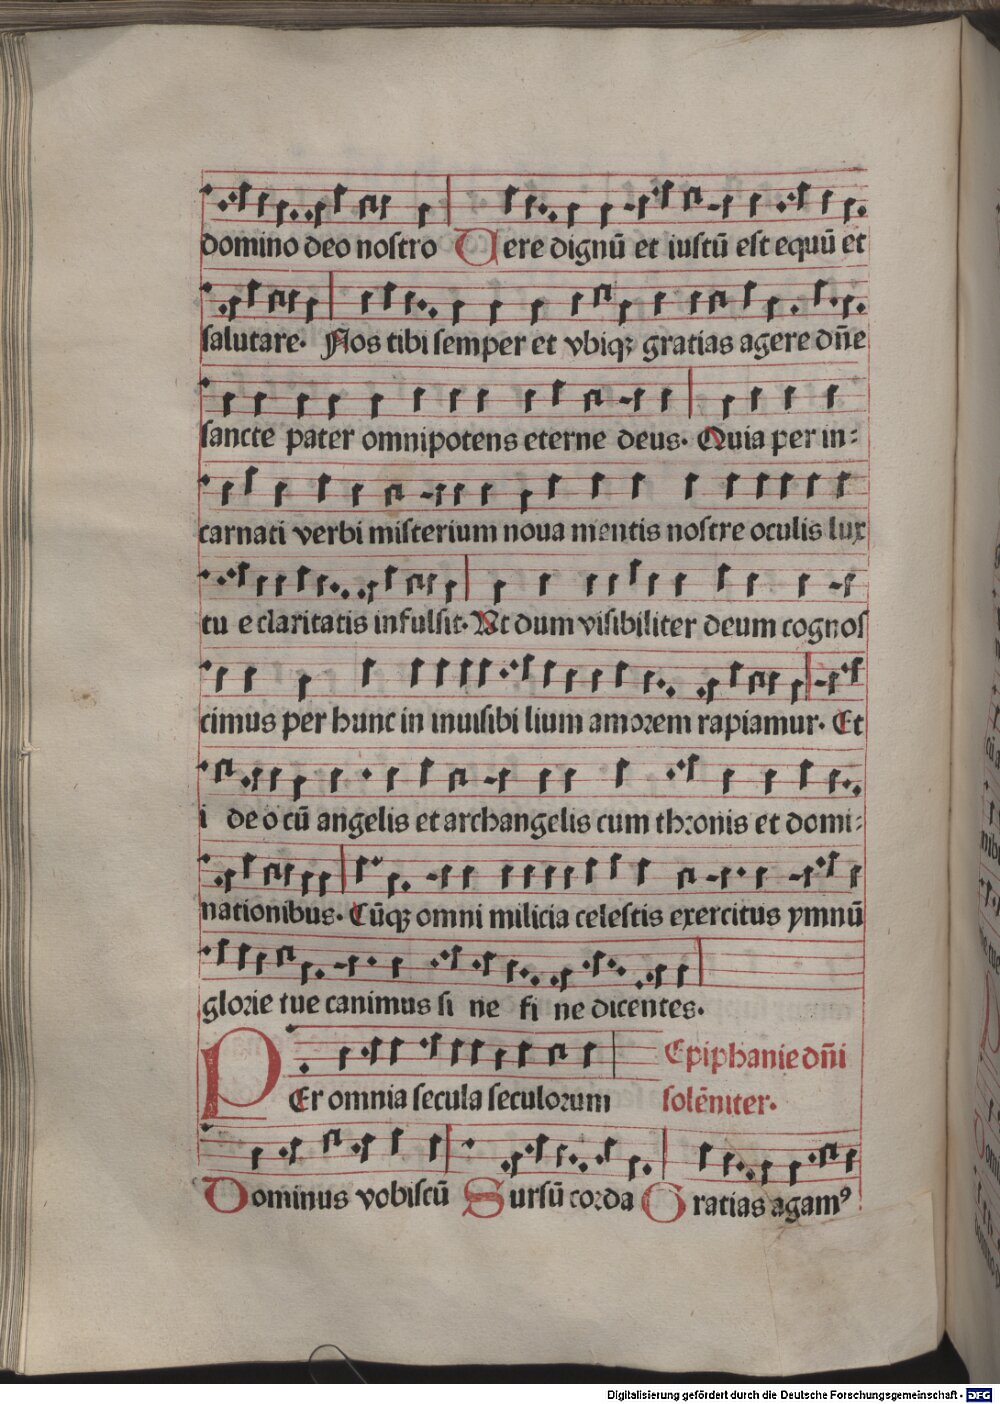 domino deo nostro Uere dignū et iustū est equū et
salutare. Nos tibi semper et vbiqꝫ gratias agere dn̄e
sancte pater omnipotens eterne deus. Quia per in⸗
carnati verbi misterium noua mentis nostre oculis lux
tu e claritatis infulsit. Ut dum visibiliter deum cognos
cimus per hunc in inuisibi lium amorem rapiamur. Et
i de o cū angelis et archangelis cum thronis et domi⸗
nationibus. Cūqꝫ omni milicia celestis exercitus ymnū
glorie tue canimus si ne fi ne dicentes.
PEr omnia secula seculorum
Epiphanie dn̄i
solēniter.
Dominus vobiscū Sursū corda Gratias agamꝰ
Digitalisierung gefördert durch die Deutsche Forschungsgemeinschaft - DFG